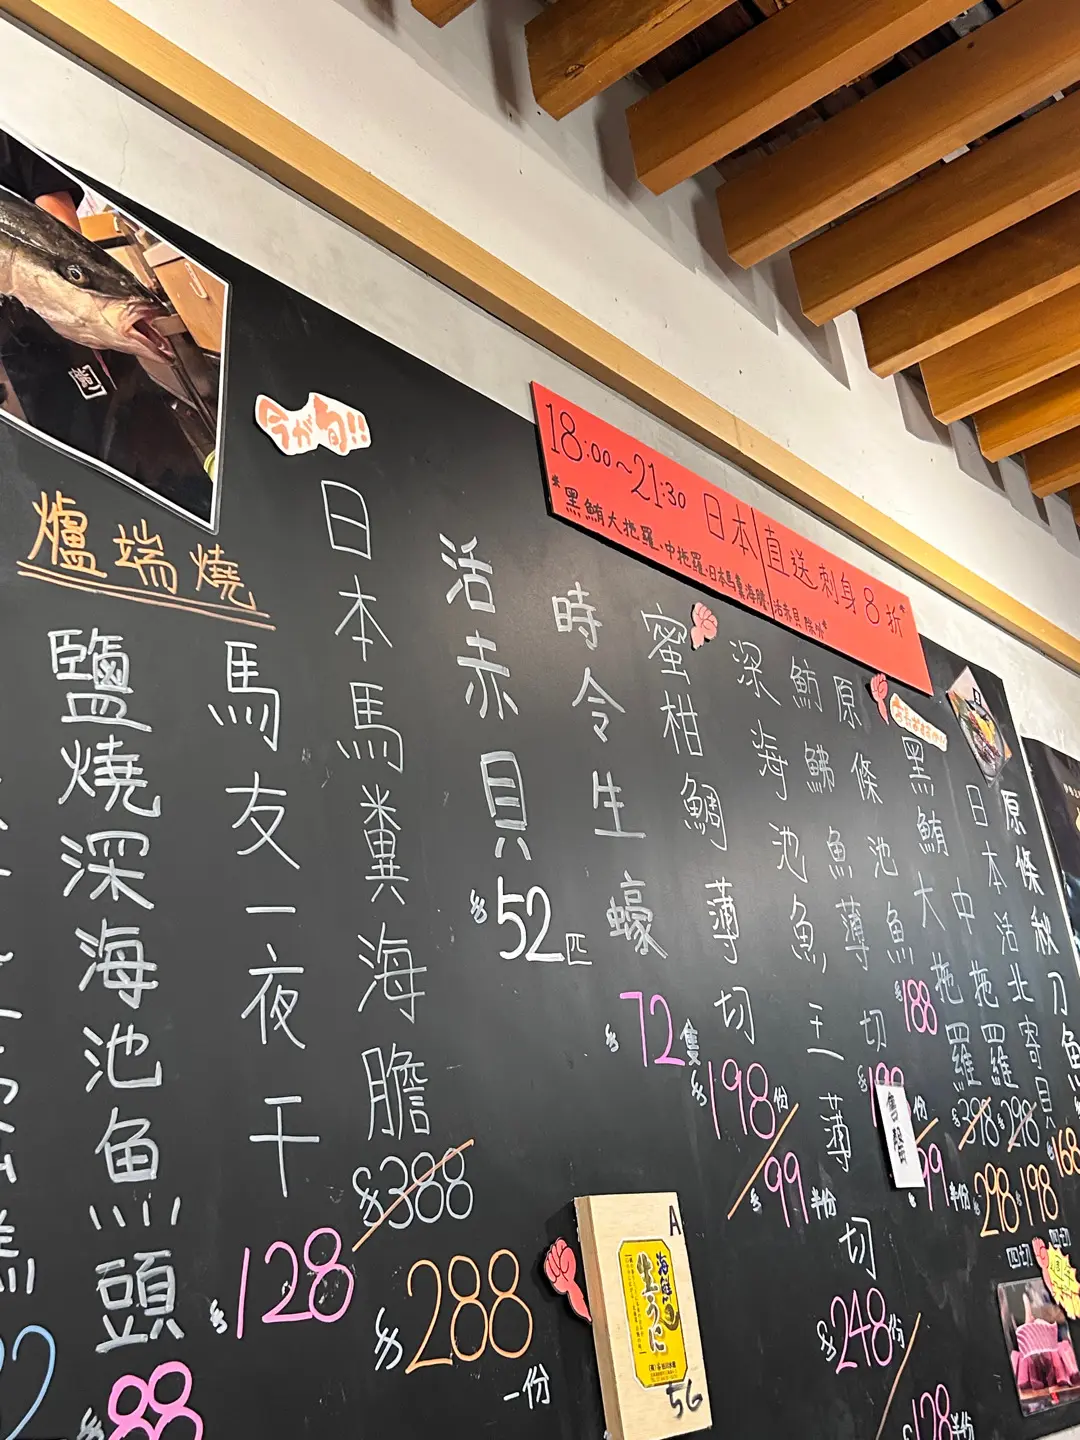 18:00～21:30 日本直送刺身8折*
*黑鮪大拖羅、中拖羅、日本馬糞海膽、活赤貝 除外*
今が旬!!
原條秋刀魚
168
日本活北寄貝
中拖羅
$298
$198
四切
黑鮪大拖羅
$398
$298
四切
原條池魚
$188
魴鮄魚薄切
份
99
半份
售罄
深海池魚王薄切
$248份
$128半份
蜜柑鯛薄切
$198份
$99半份
時令生蠔
$72隻
活赤貝
$52匹
日本馬糞海膽
$388
$288
一份
A
海鮮
生うに
56
爐端燒
馬友一夜干
$128
鹽燒深海池魚頭
$88